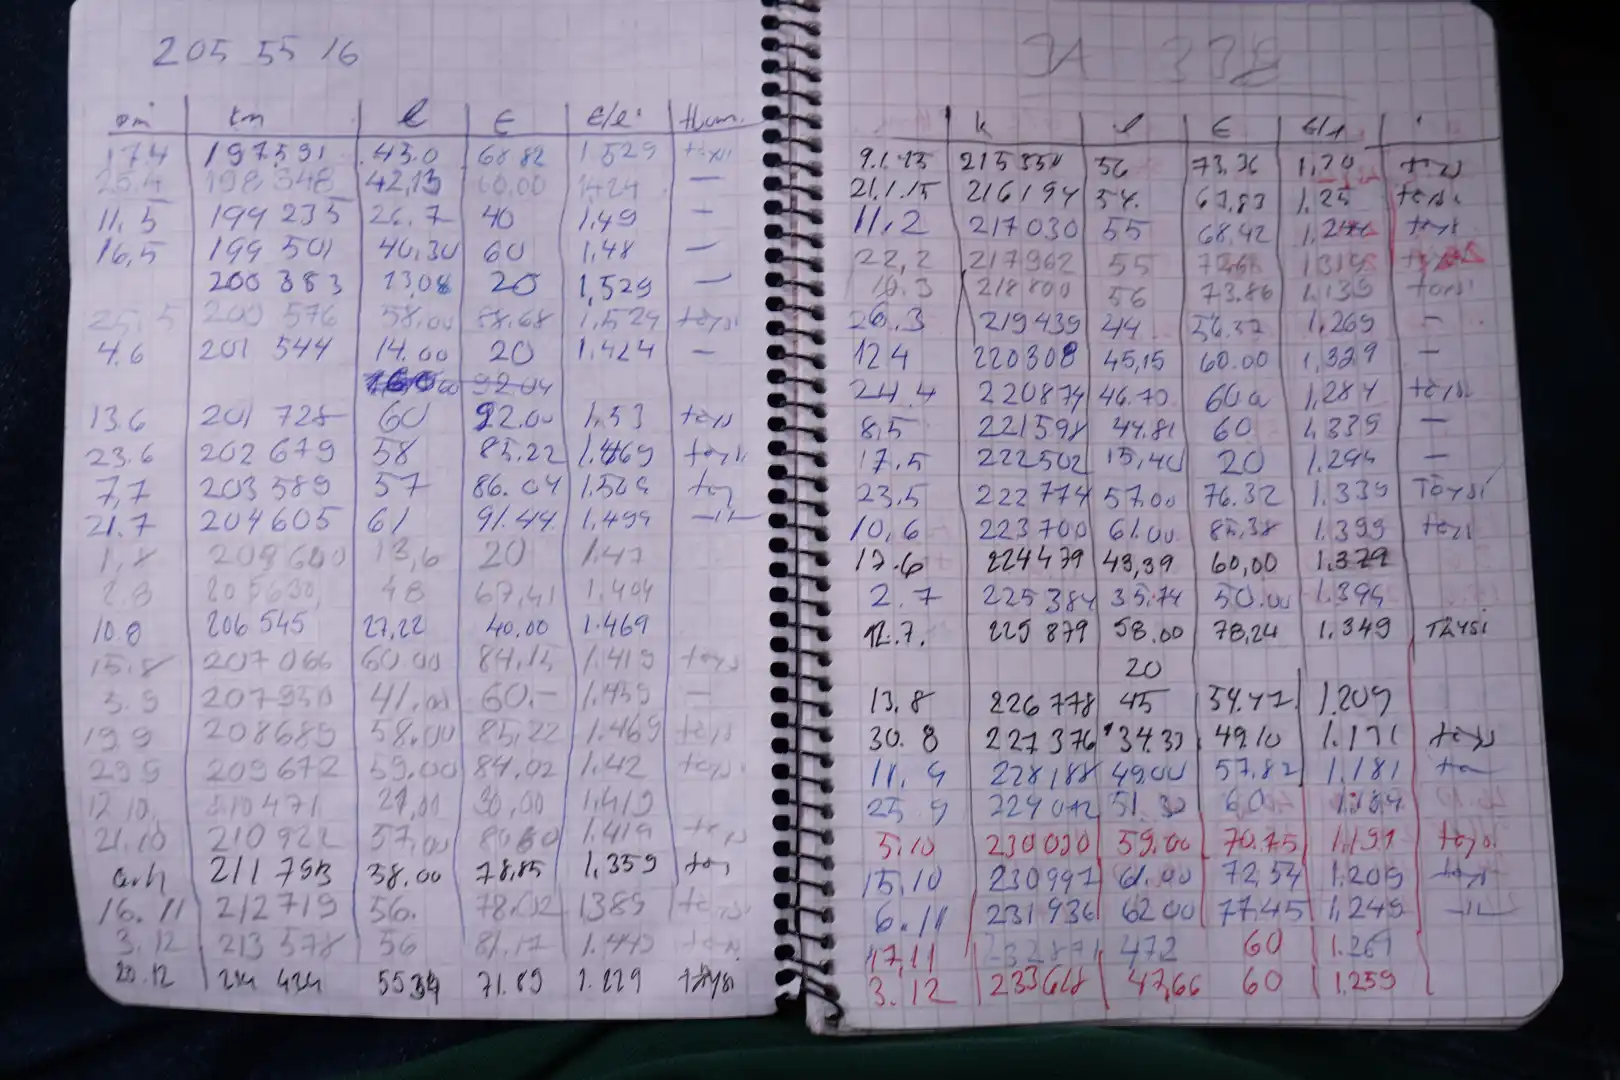 205 55 16
pm km l € €/l Huom.
17.4 197591 43.0 68.82 1.529 täysi
25.4 198 348 42,13 60,00 1424 —
11.5 199 235 26.7 40 1,49 —
16,5 199 501 40,30 60 1,48 —
200 383 13,08 20 1,529 —
25,5 200 576 58.00 88.68 1,529 täysi
4.6 201 544 14.00 20 1,424 —
92.04
13.6 201 728 60 92.00 1,53 täys
23.6 202 679 58 85.22 1.469 täys
7,7 203 589 57 86.04 1,509 täy
21.7 204605 61 91.44 1,499 —ıı—
1,8 13,6 20 1.47
2.8 205630, 48 67,41 1.404
10.8 206 545 27,22 40.00 1.469
15.8 207 066 60.00 84,14 1.419 täys
3.9 207 950 41,00 60.– 1.459 —
19.9 208689 58.00 85,22 1.469 täys
29.9 209672 59.00 84.02 1.42 täysi
12.10. 210471 21,00 30,00 1,419
21.10 210 922 57,00 80.80 1.419 täys
211 793 58.00 78,85 1,359 täy
16.11 212719 56. 78.02 1389 täysi
3.12 213 578 56 81,17 1.449 täysi
20.12 214 434 5534 71.89 1.229 täysi
k l € €/l
9.1.15 215 354 56 73,36 1,29 täys
21.1.15 216194 54. 67,83 1,25 täysi
11.2 217030 55 68,42 1,244 täys
22,2 217962 55 1319
10.3 218800 56 73.86 1.139 täysi
26.3 219439 44 56.32 1,269 —
12 4 220308 45,15 60.00 1,329 —
24.4 220874 46.70 60,0 1,284 täysi
8,5 221598 44.81 60 1,339 —
17.5 222502 15,40 20 1.294 —
23,5 222774 57.00 76.32 1.339 Töysi
10,6 223700 61.00 85,38 1.399 täysi
17.6 224479 43,39 60,00 1.379
2.7 225384 35.74 50.00 1.394
12.7. 225 879 58.00 78,24 1.349 TÄYSI
20
13.8 226778 45 54.42 1.209
30.8 227376 34.33 49.10 1.171 täys
11.9 228188 49.00 57.82 1.181
25.9 229042 51.30 60
5.10 230030 59.00 70.75 1.197 täysi
15.10 230997 61.00 72,54 1.209 täys
6.11 231936 62.00 77.45 1,249 —ıı—
17,11 232871 472 60 1.267
3.12 233668 47,66 60 1,259